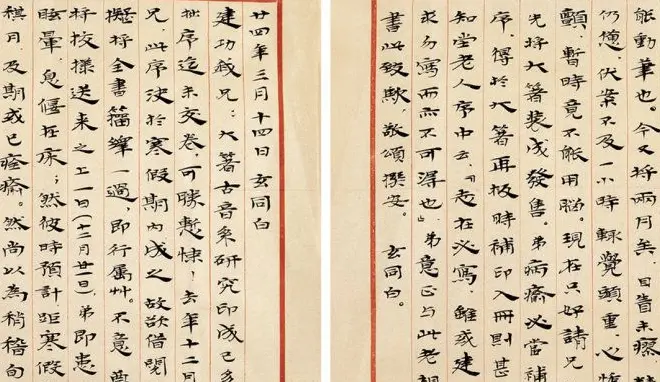 廿四年三月十四日玄同白
建功我兄：大著古音系研究印成已多
拙序迄未交卷，可勝慚悚！去年十二月
兄，此序決於寒假期內成之，故欲借閱
擬將全書籀繹一過，即行屬艸。不意
將校樣送來之上一日（十二月廿一日），弟即患
眩暈，息偃在牀；然彼時預計，距寒假
稘月，及期或已痊瘉。然尚以為稍稽旬
能動筆也。今又將兩月矣，目眚未瘳
仍憊，伏案不及一小時，輒覺頭重，心悸
顫，暫時竟不能用腦。現在只好請兄
先將大著裝成發售。弟病瘉必當補
序，俾於大著再版時補印入冊，則甚
知堂老人序中云，「志在必寫，雖或建
求勿寫而亦不可得也」，弟意正与此老相
書此致歉，敬頌撰安。 玄同白。